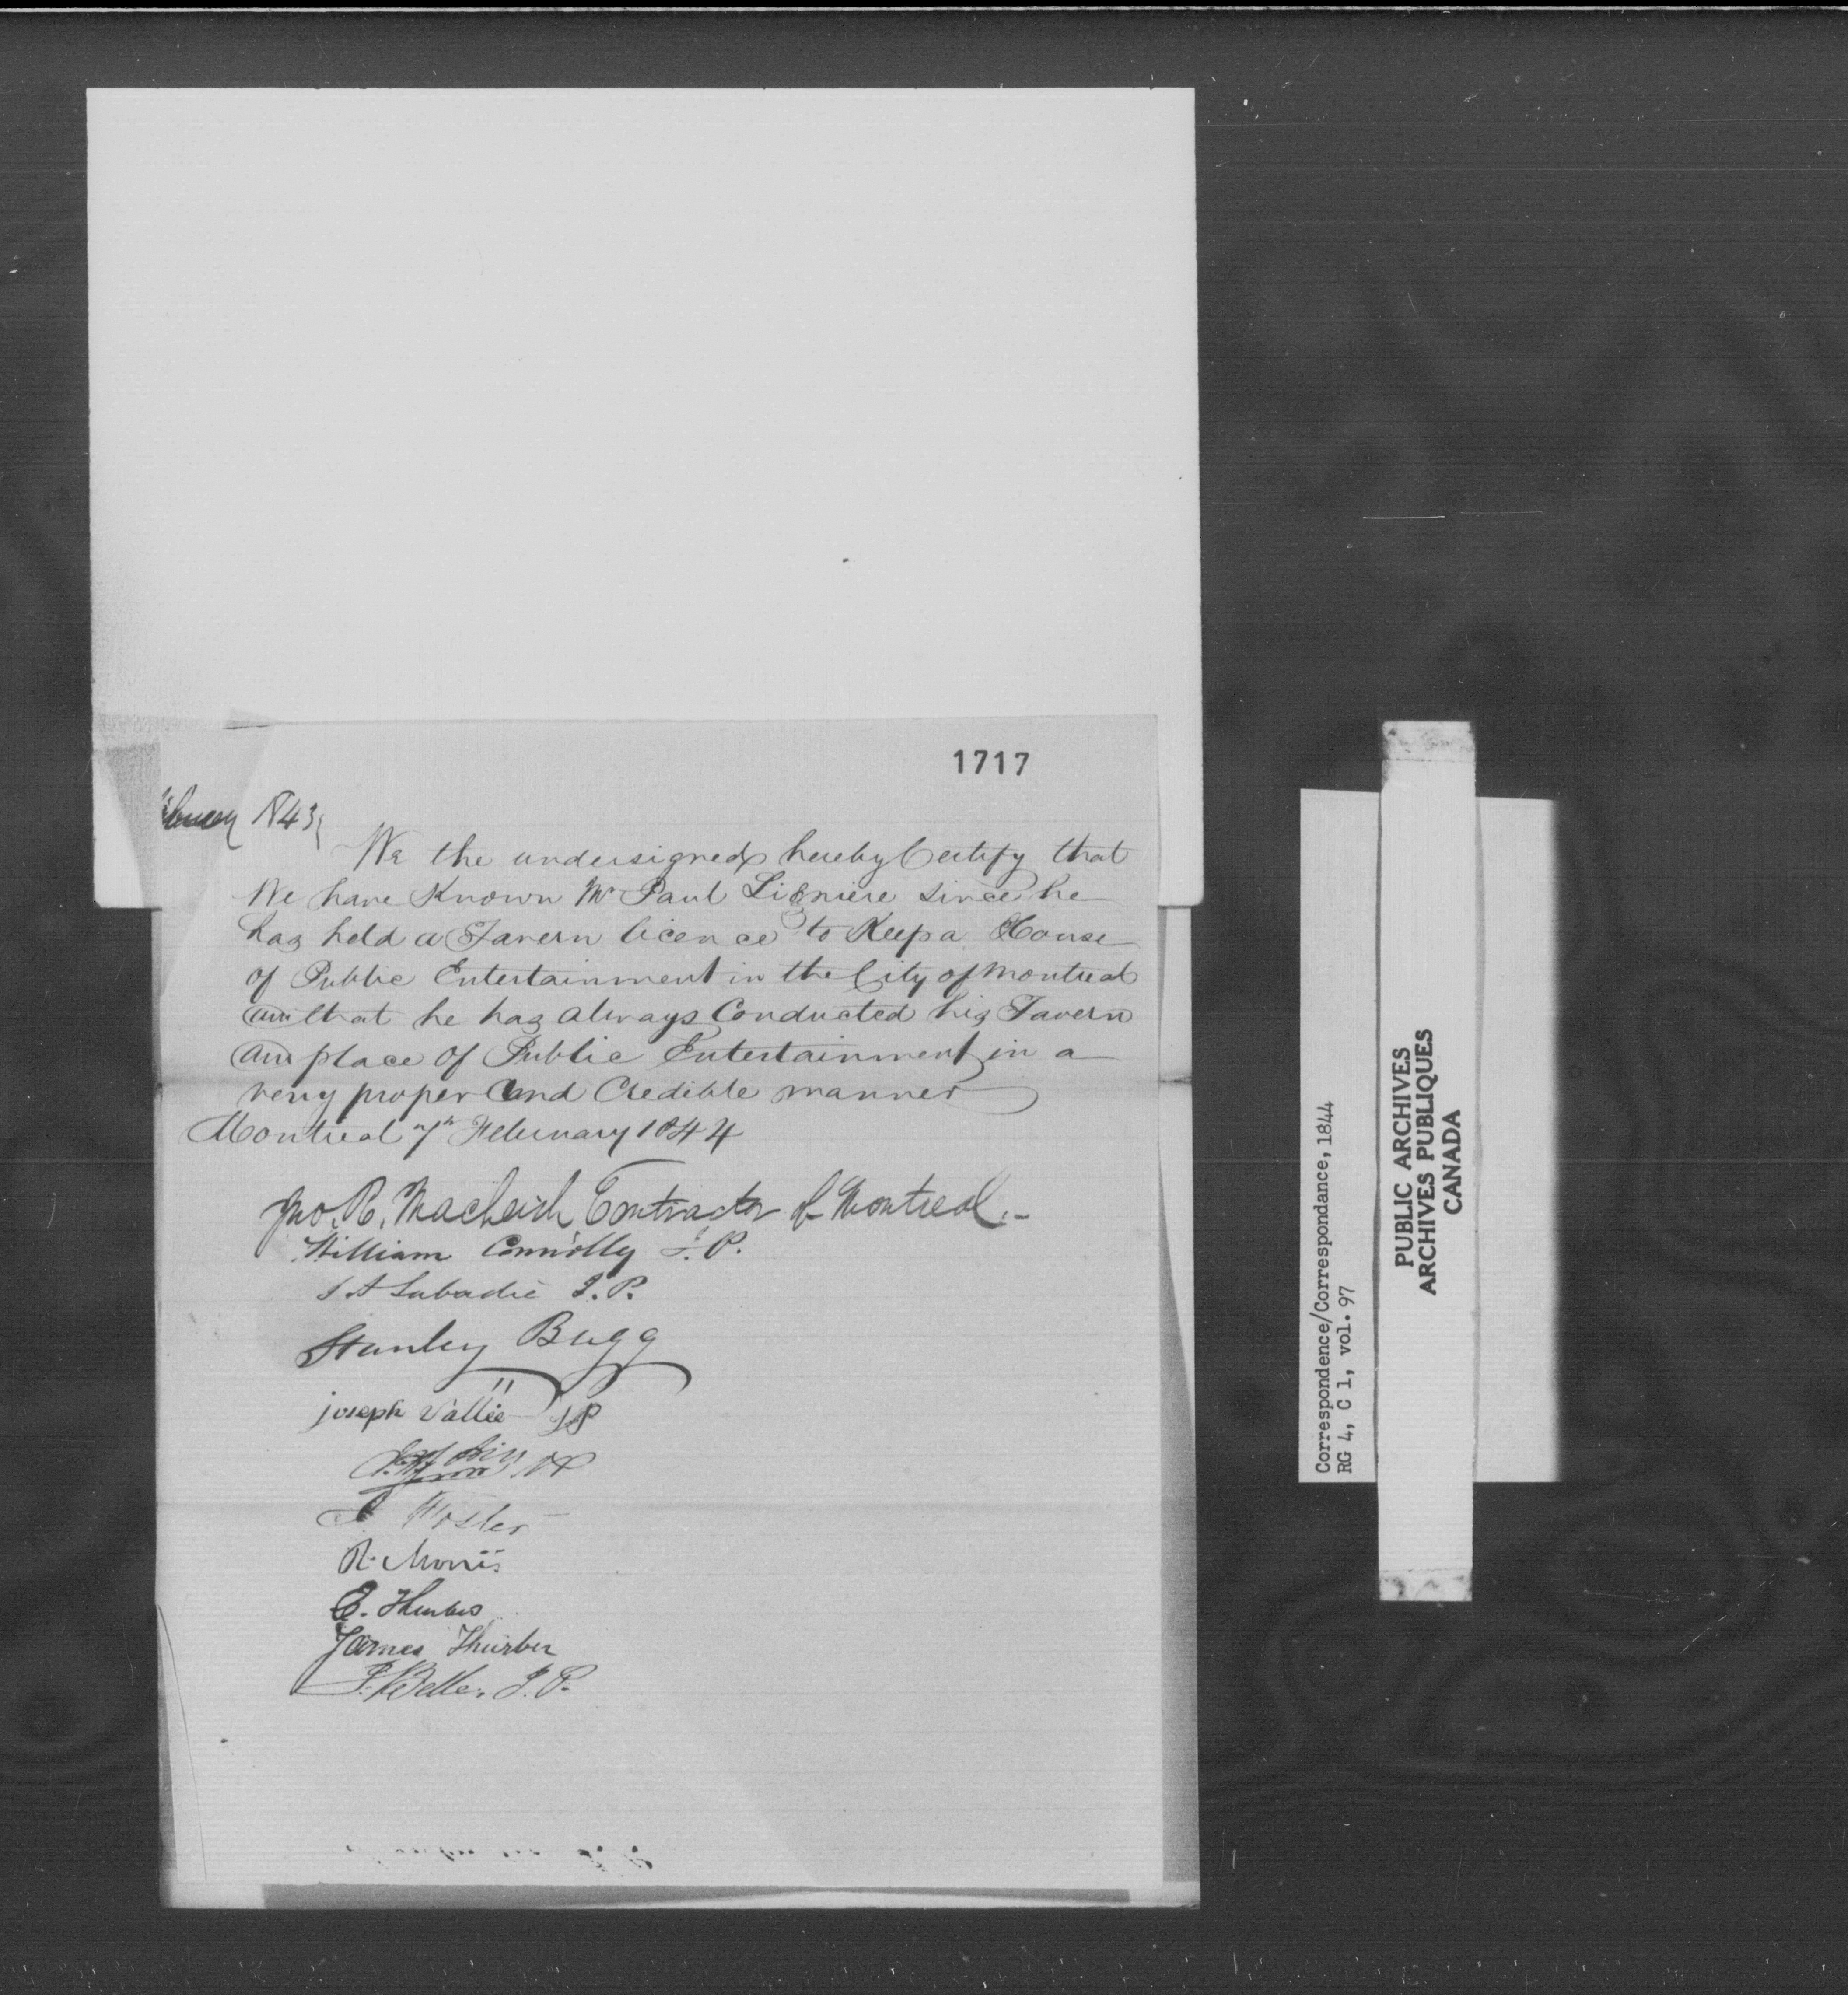 1717
1843
We the undersigned hereby Certify that
We have Known Mr Paul Lignière since he
has held a Tavern licence to Keep a House
of Public Entertainment in the City of Montreal
and that he has always Conducted his Tavern
and place of Public Entertainment in a
very proper and Credible manner
Montreal 7th February 1844
Jno. R. Contractor of Montreal.
William Connolly J.P.
Labadie J.P.
Stanley Bagg
joseph Vallée JP
NP
Foster
R. Morris
E. Thurber
James Thurber
J. Belle. J.P.
Correspondence/Correspondance, 1844
RG 4, C 1, vol. 97
PUBLIC ARCHIVES
ARCHIVES PUBLIQUES
CANADA